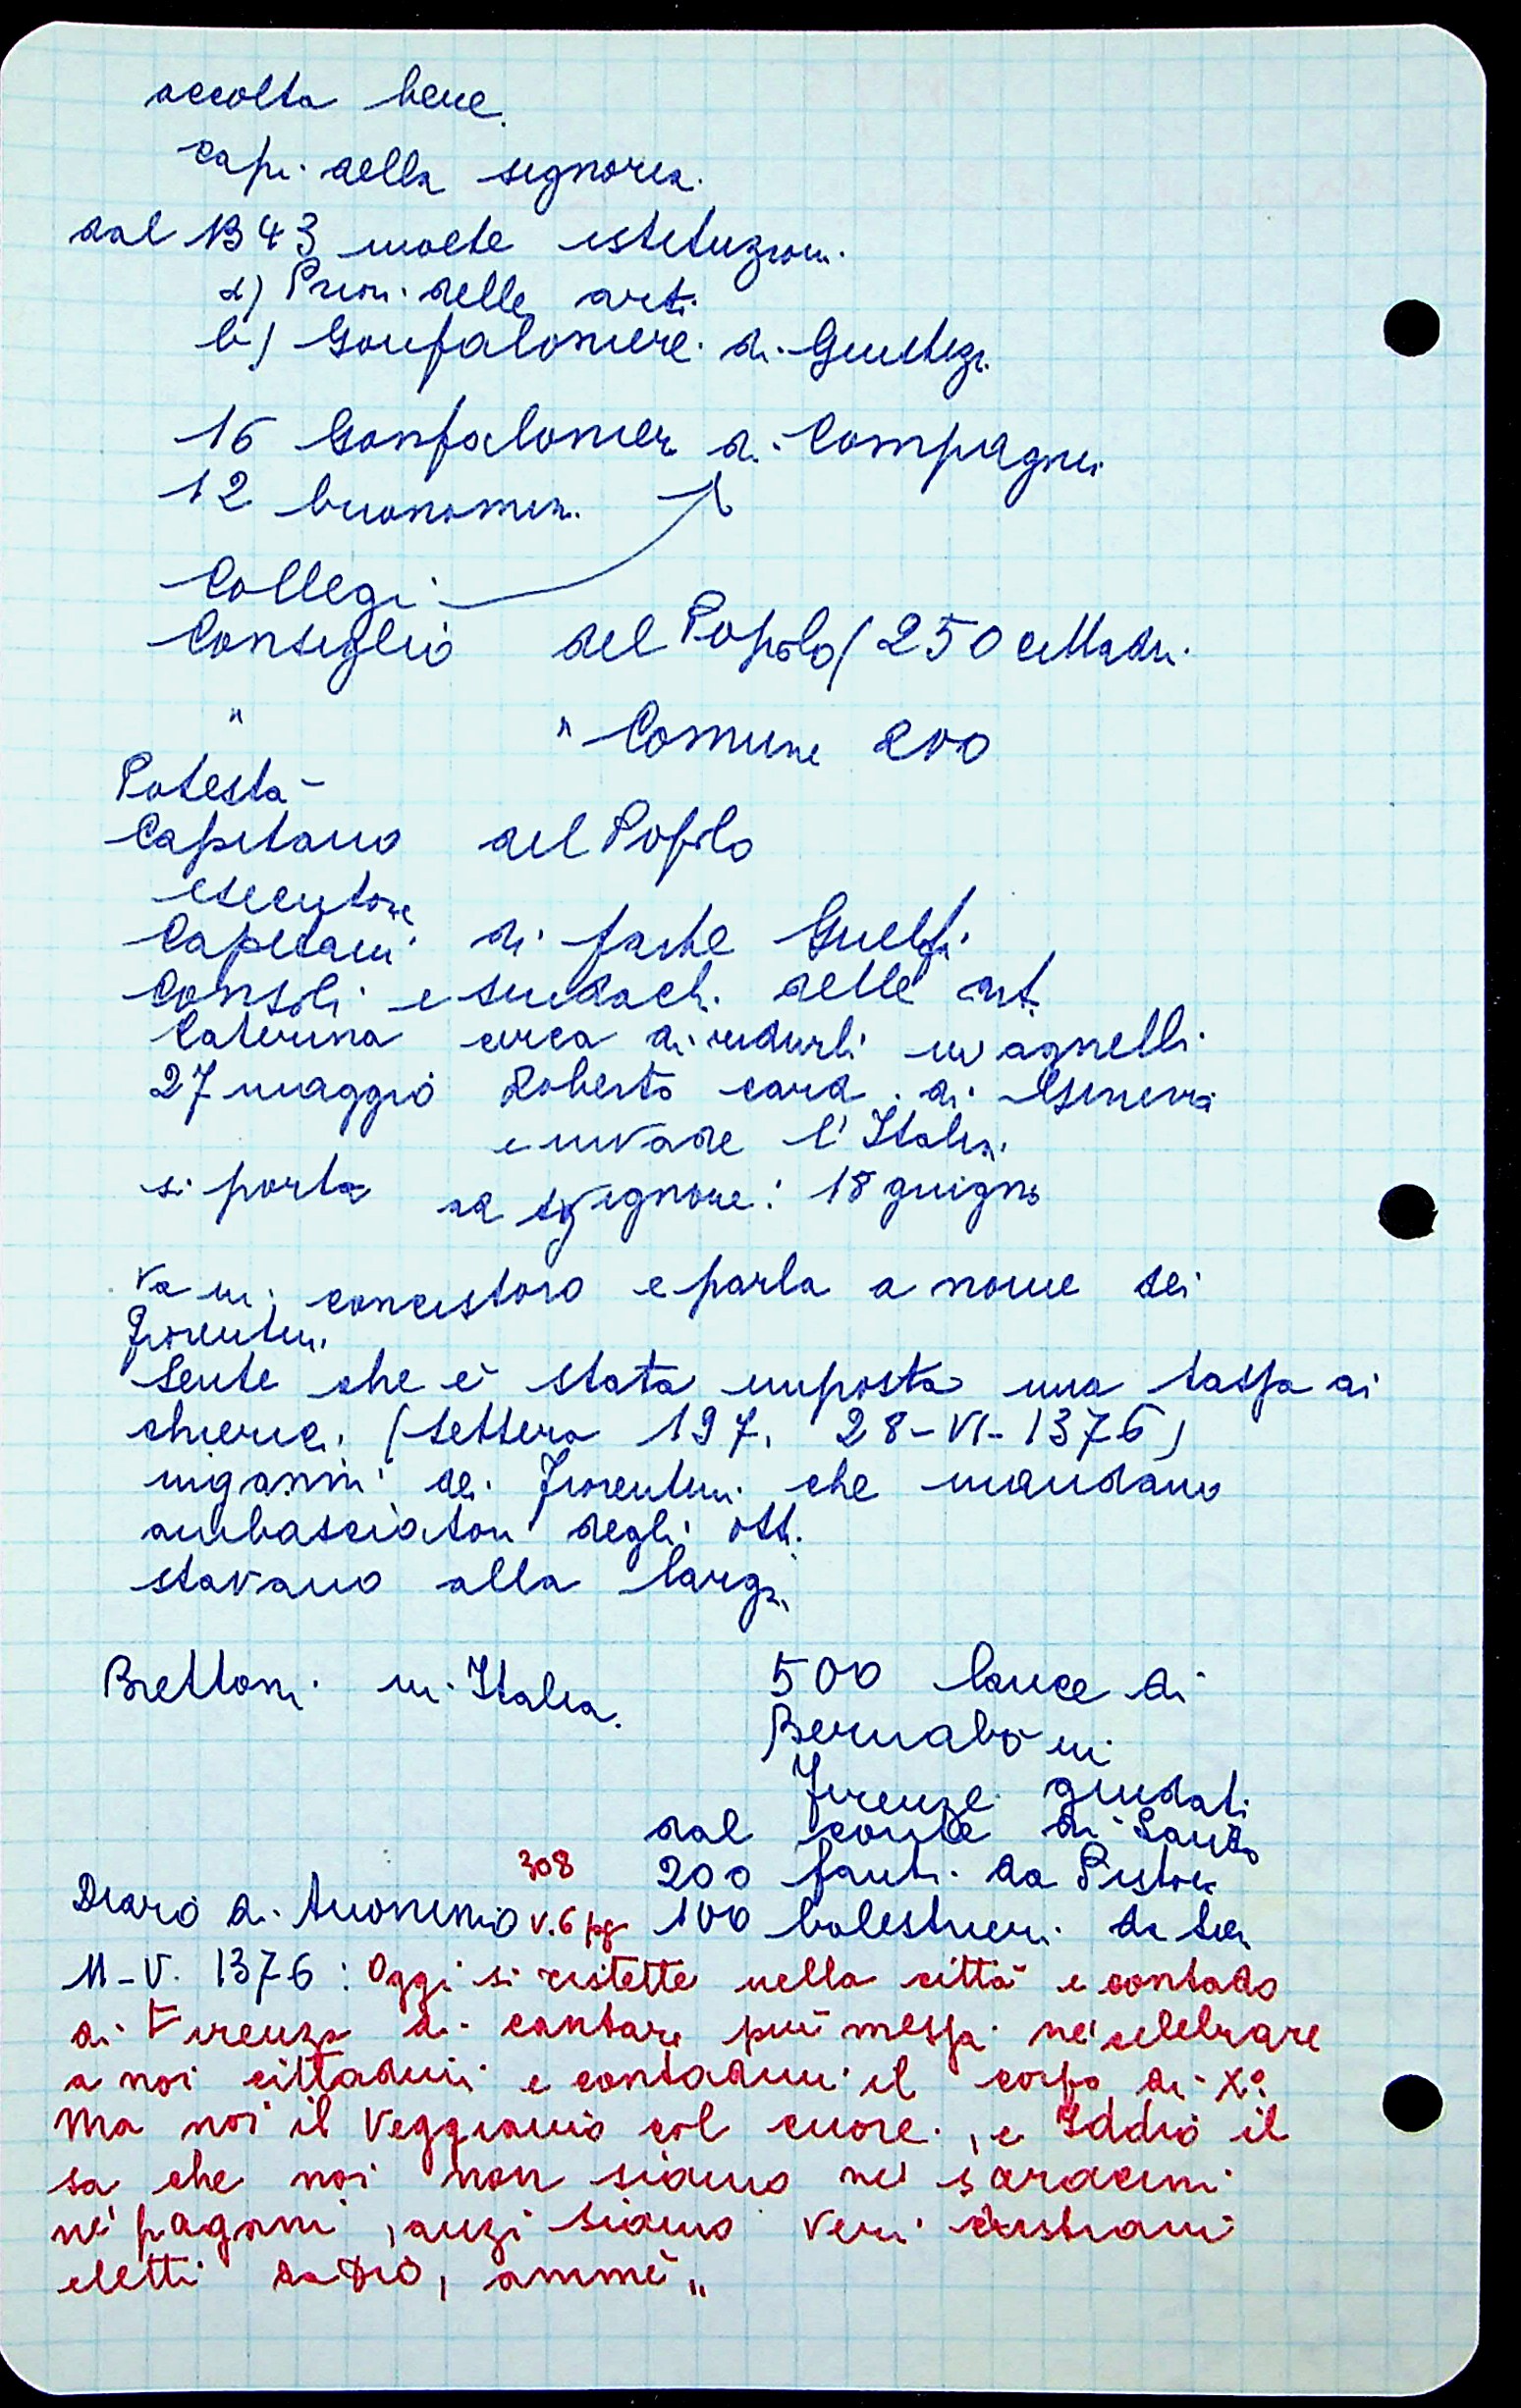 accolta bene.
capi della signoria.
dal 1343 molte istituzioni.
a) Priori delle arti
b) Gonfaloniere di Giustizia
16 Gonfalonieri di Compagnia
12 buonomini.
Collegi
Consiglio del Popolo / 250 cittadini.
" " Comune 200
Potestà
Capitano del Popolo
esecutore
Capitani di parte Guelfi
Consoli e sindachi delle arti
Caterina cerca di ridurli in agnelli.
27 maggio Roberto card. di Ginevra
e invade l'Italia.
si porta ad Avignone: 18 giugno
Va in concistoro e parla a nome dei
fiorentini
Sente che è stata imposta una tassa ai
chierici. (lettera 197, 28-VI-1376)
inganni dei Fiorentini che mandano
ambasciatori degli otto.
stavano alla larga
Brettoni in Italia.
500 lance di
Bernabò in
Firenze guidati
dal conte di
200 fanti da Pistoia
100 balestrieri da
Diario di Anonimo v.6 pg 308
11-V. 1376: Oggi si ristette nella città e contado
di Firenze di cantare più messa né celebrare
a noi cittadini e contadini il corpo di Xº
Ma noi il veggiamo col cuore, e Iddio il
sa che noi non siamo né saraceni
né pagani, anzi siamo veri cristiani
eletti da Dio, ammè"